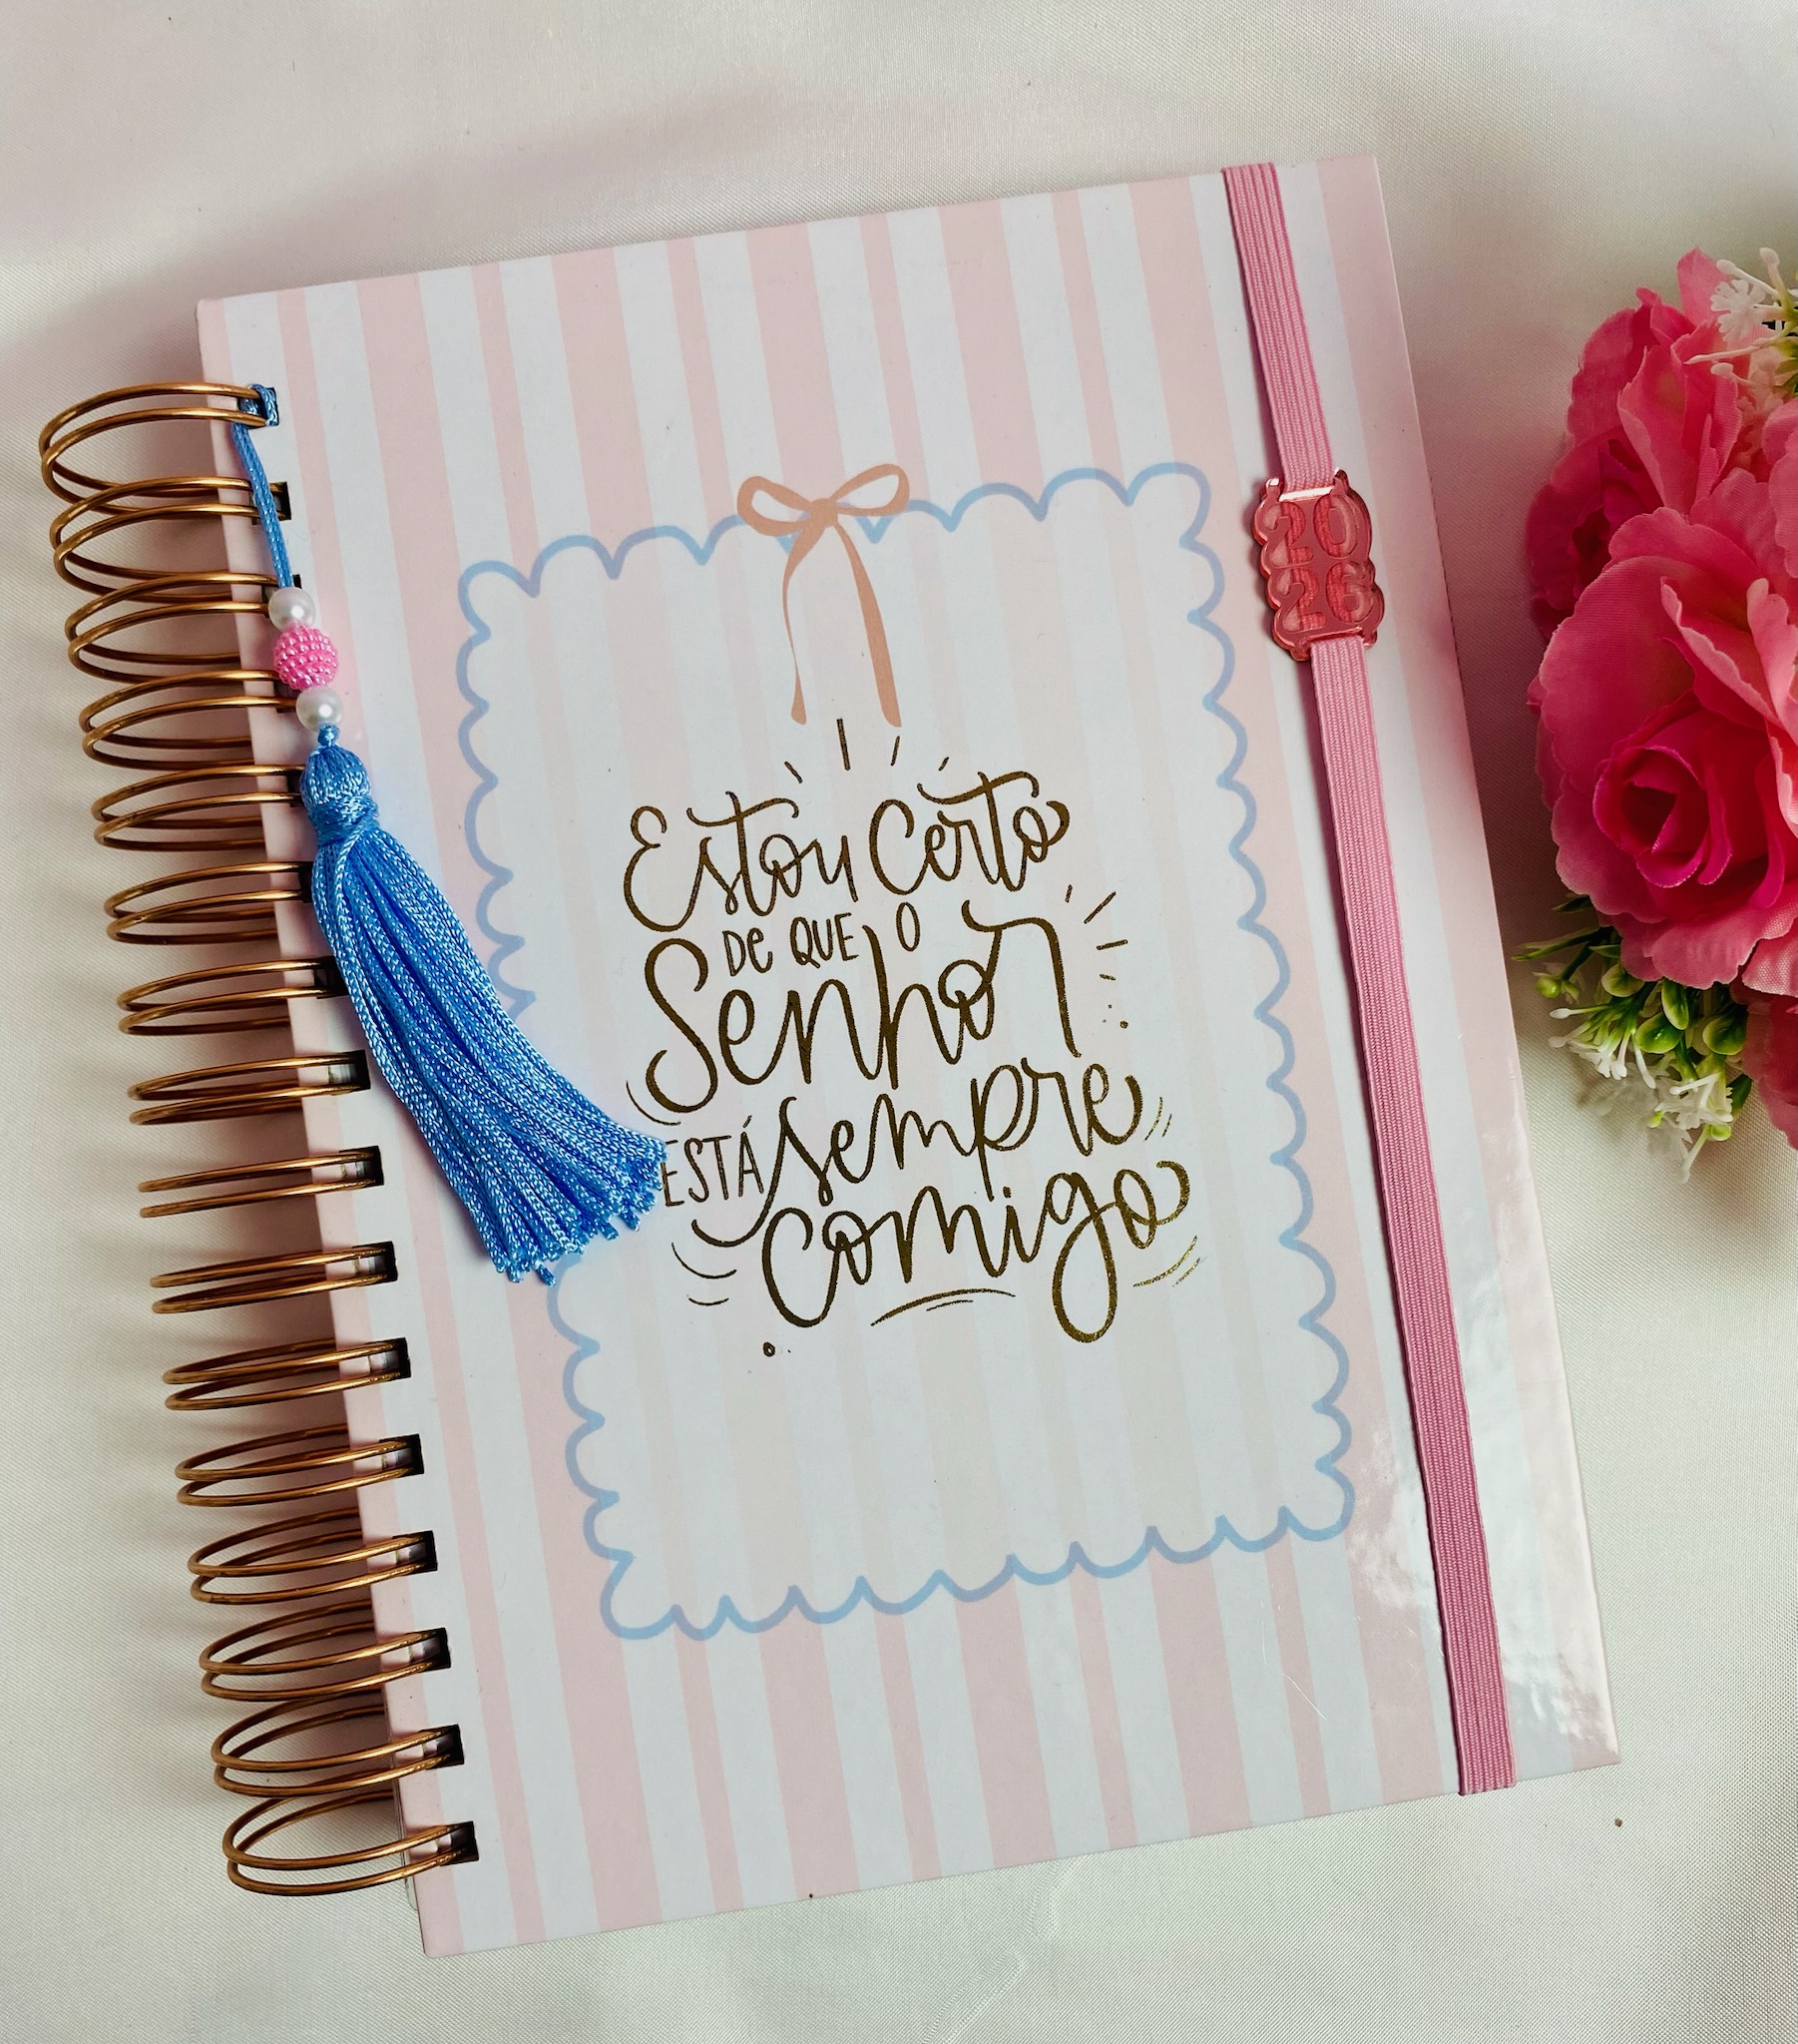 20
26
Estou Certo
DE QUE O
Senhor
ESTÁ sempre
comigo